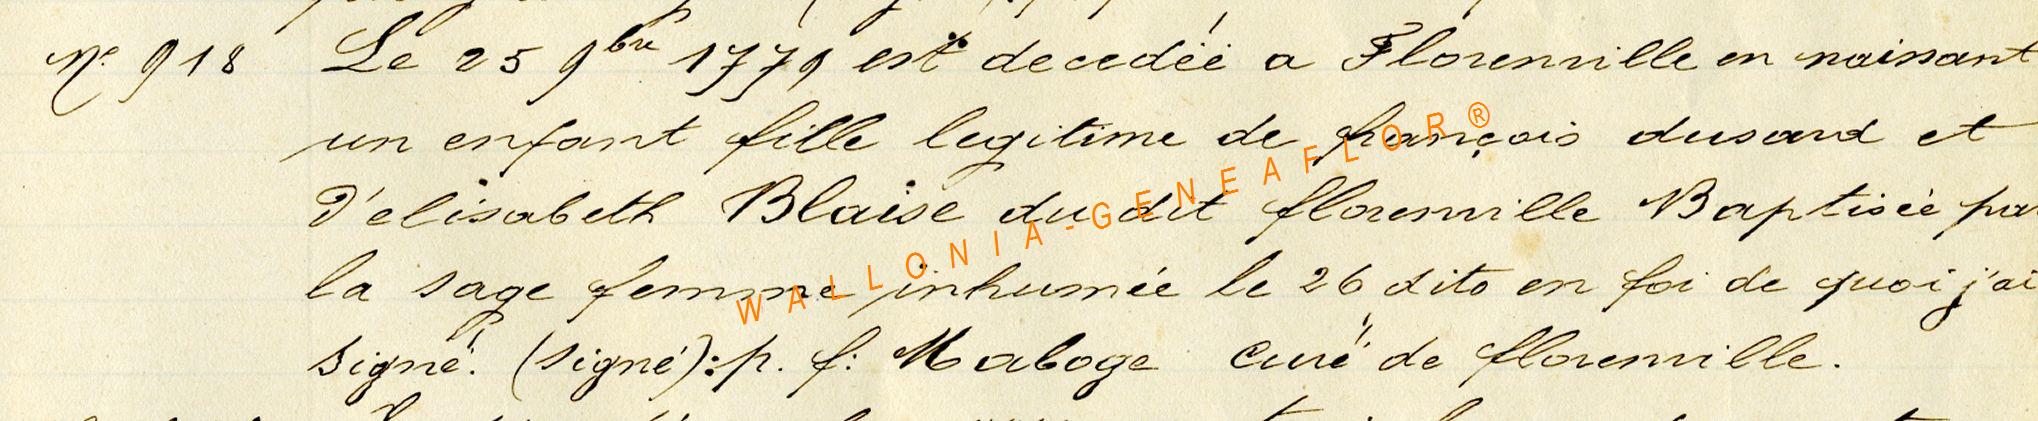 No 918 Le 25 9bre 1779 est decedéé a Florenville en naissant
un enfant fille legitime de françois dusard et
D'elisabeth Blaise du dit florenville Baptiséé par
la sage femme inhumée le 26 dito en foi de quoi j'ai
signé. (signé): p. f: Maboge Curé de florenville.
WALLONIA-GENEAFLOR®